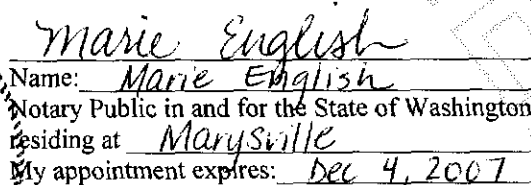 Marie English
Name: Marie English
Notary Public in and for the State of Washington
residing at Marysville
My appointment expires: Dec 4, 2007